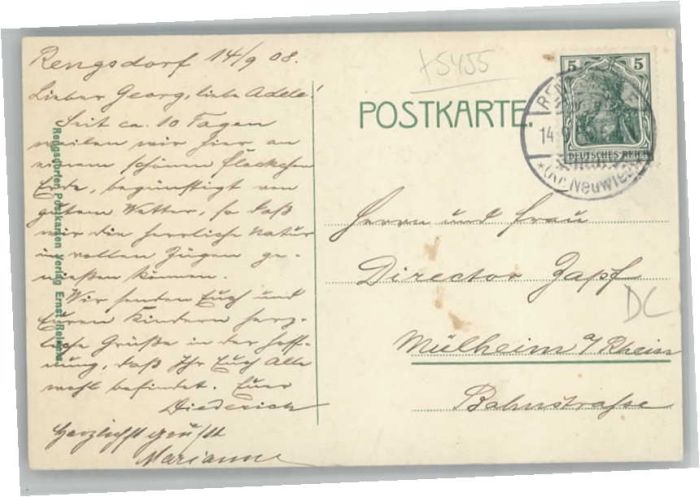 Rengsdorf 14/9 08.
Lieber Georg, liebe Adele!
Seit ca. 10 Tagen
weilen wir hier an
einem schönen Fleckchen
Erde, begünstigt von
gutem Wetter, so daß
wir die herrliche Natur
in vollen Zügen ge-
nießen können.
Wir senden Euch und
Euren Kindern herz-
liche Grüße in der Hoff-
nung, daß Ihr Euch Alle
wohl befindet. Euer
Diederich
Herzlichst grüßt
Marianne
Rengsdorfer Postkarten Verlag Ernst
+5455
POSTKARTE.
5 5
DEUTSCHES REICH
14.9
* (Kr. Neuwied)
Herrn und Frau
Director Zapf
DC
Mülheim a/Rhein
Bahnstraße